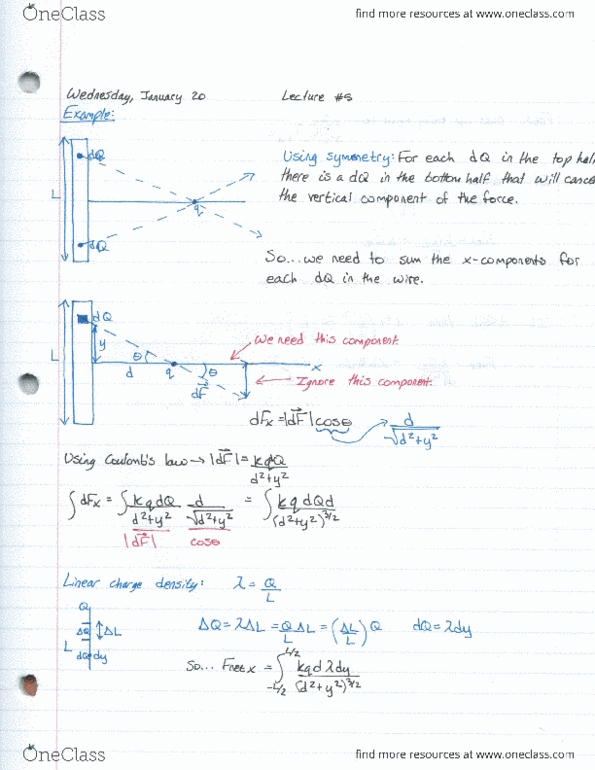 OneClass
find more resources at www.oneclass.com
Wednesday, January 20
Lecture #5
Example:
dQ
L
q
dQ
Using symmetry: For each dQ in the top hal
there is a dQ in the bottom half that will cance
the vertical component of the force.
So... we need to sum the x-components for
each dQ in the wire.
dQ
L
y
θ
d
q
θ
dF⃗
x
We need this component.
Ignore this component.
dFx = |dF⃗| cosθ → d/√d²+y²
Using Coulomb's law → |dF⃗| = kqdQ/d²+y²
∫dFx = ∫ kqdQ/d²+y² d/√d²+y² = ∫ kqdQd/(d²+y²)^3/2
|dF⃗| cosθ
Linear charge density: λ = Q/L
Q
ΔQ ΔL
L
dQ dy
ΔQ = λΔL = Q/L ΔL = (ΔL/L) Q dQ = λdy
So... Fnet x = ∫ -L/2 L/2 kqdλdy/(d²+y²)^3/2
OneClass
find more resources at www.oneclass.com